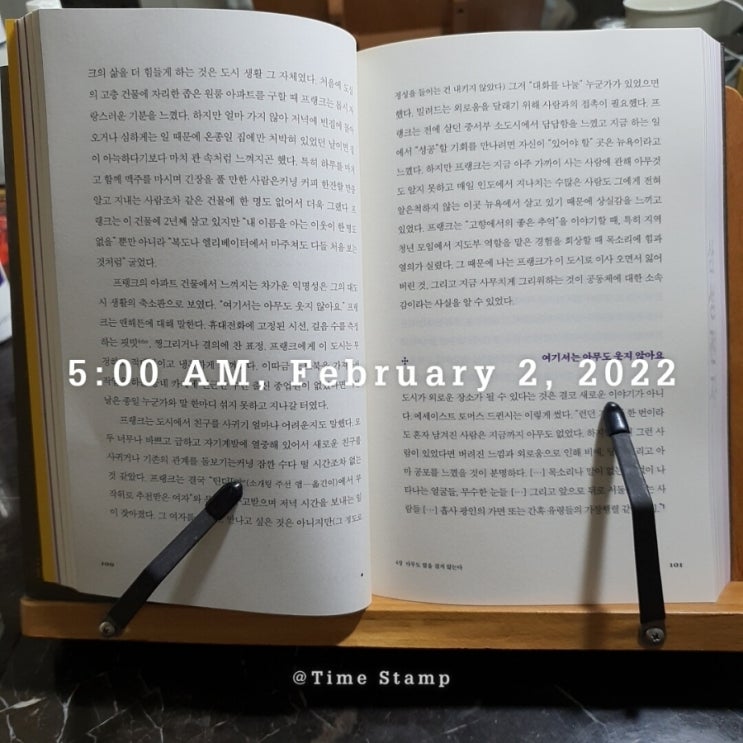 크의 삶을 더 힘들게 하는 것은 도시 생활 그 자체였다. 처음에 도심
의 고층 건물에 자리한 좁은 원룸 아파트를 구할 때 프랭크는 몹시 자
랑스러운 기분을 느꼈다. 하지만 얼마 가지 않아 저녁에 빈집에 돌아
오거나 심하게는 일 때문에 온종일 집에만 처박혀 있었던 날이면 집
이 아늑하다기보다 마치 관 속처럼 느껴지곤 했다. 특히 하루를 마치
고 함께 맥주를 마시며 긴장을 풀 만한 사람은커녕 커피 한잔할 만큼
알고 지내는 사람조차 같은 건물에 한 명도 없어서 더욱 그랬다. 프
랭크는 이 건물에 2년째 살고 있지만 “내 이름을 아는 이웃이 한 명도
없을” 뿐만 아니라 “복도나 엘리베이터에서 마주쳐도 다들 처음 보는
것처럼” 굴었다.
프랭크의 아파트 건물에서 느껴지는 차가운 익명성은 그의 대도
시 생활의 축소판으로 보였다. “여기서는 아무도 웃지 않아요.” 프랭
크는 맨해튼에 대해 말한다. 휴대전화에 고정된 시선, 걸음 수를 측정
하는 핏빗, 찡그리거나 결의에 찬 표정. 프랭크에게 이 도시는 무
이따금
낯은 종일 누군가와 말 한마디 섞지 못하고 지나갈 터였다.
프랭크는 도시에서 친구를 사귀기 얼마나 어려운지도 말했다. 모
두 너무나 바쁘고 급하고 자기계발에 열중해 있어서 새로운 친구를
사귀거나 기존의 관계를 돌보기는커녕 잠깐 수다 떨 시간조차 없는
것 같았다. 프랭크는 결국 (소개팅 주선 앱—옮긴이)에서 무
작위로 추천받은 여자와 고받으며 저녁 시간을 보내는 일
이 잦아졌다. 그 여자를 만나고 싶은 것은 아니지만(그 정도로
100
정성을 들이는 건 내키지 않았다) 그저 “대화를 나눌” 누군가가 있었으면
했다. 밀려드는 외로움을 달래기 위해 사람과의 접촉이 필요했다. 프
랭크는 전에 살던 중서부 소도시에서 답답함을 느꼈고 지금 하는 일
에서 “성공”할 기회를 만나려면 자신이 “있어야 할” 곳은 뉴욕이라고
느꼈다. 하지만 프랭크는 지금 아주 가까이 사는 사람에 관해 아무것
도 알지 못하고 매일 인도에서 지나치는 수많은 사람도 그에게 전혀
알은척하지 않는 이곳 뉴욕에서 살고 있기 때문에 상실감을 느끼고
있었다. 프랭크는 “고향에서의 좋은 추억”을 이야기할 때, 특히 지역
청년 모임에서 지도부 역할을 맡은 경험을 회상할 때 목소리에 힘과
열의가 실렸다. 그 때문에 나는 프랭크가 이 도시로 이사 오면서 잃어
버린 것, 그리고 지금 사무치게 그리워하는 것이 공동체에 대한 소속
감이라는 사실을 알 수 있었다.
여기서는 아무도 웃지 않아요
5:00 AM, February 2, 2022
도시가 외로운 장소가 될 수 있다는 것은 결코 새로운 이야기가 아니
다. 에세이스트 토머스 드퀸시는 이렇게 썼다. “런던 한 번이라
도 혼자 남겨진 사람은 지금까지 아무도 없었다. 그런 사
람이 있었다면 버려진 느낌과 외로움으로 인해 비애 그리고 아
마 공포를 느꼈을 것이 분명하다. […] 목소리나 말이 없는 나
타나는 얼굴들, 무수한 눈들 […] 그리고 앞으로 뒤로 서둘 사
람들 […] 흡사 광인의 가면 또는 간혹 유령들의 가장행렬 같
4장 아무도 없을 쉽게 않는다
101
@Time Stamp